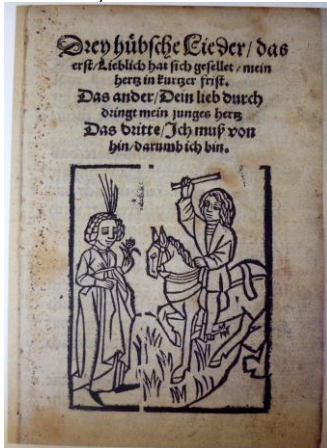 Drey hübsche Lieder/ das
erst/ Lieblich hat sich gesellet / mein
hertz in kurtzer frist.
Das ander/ Dein lieb durch
dringt mein junges hertz
Das dritte/ Ich muß von
hin/ darumb ich bin.